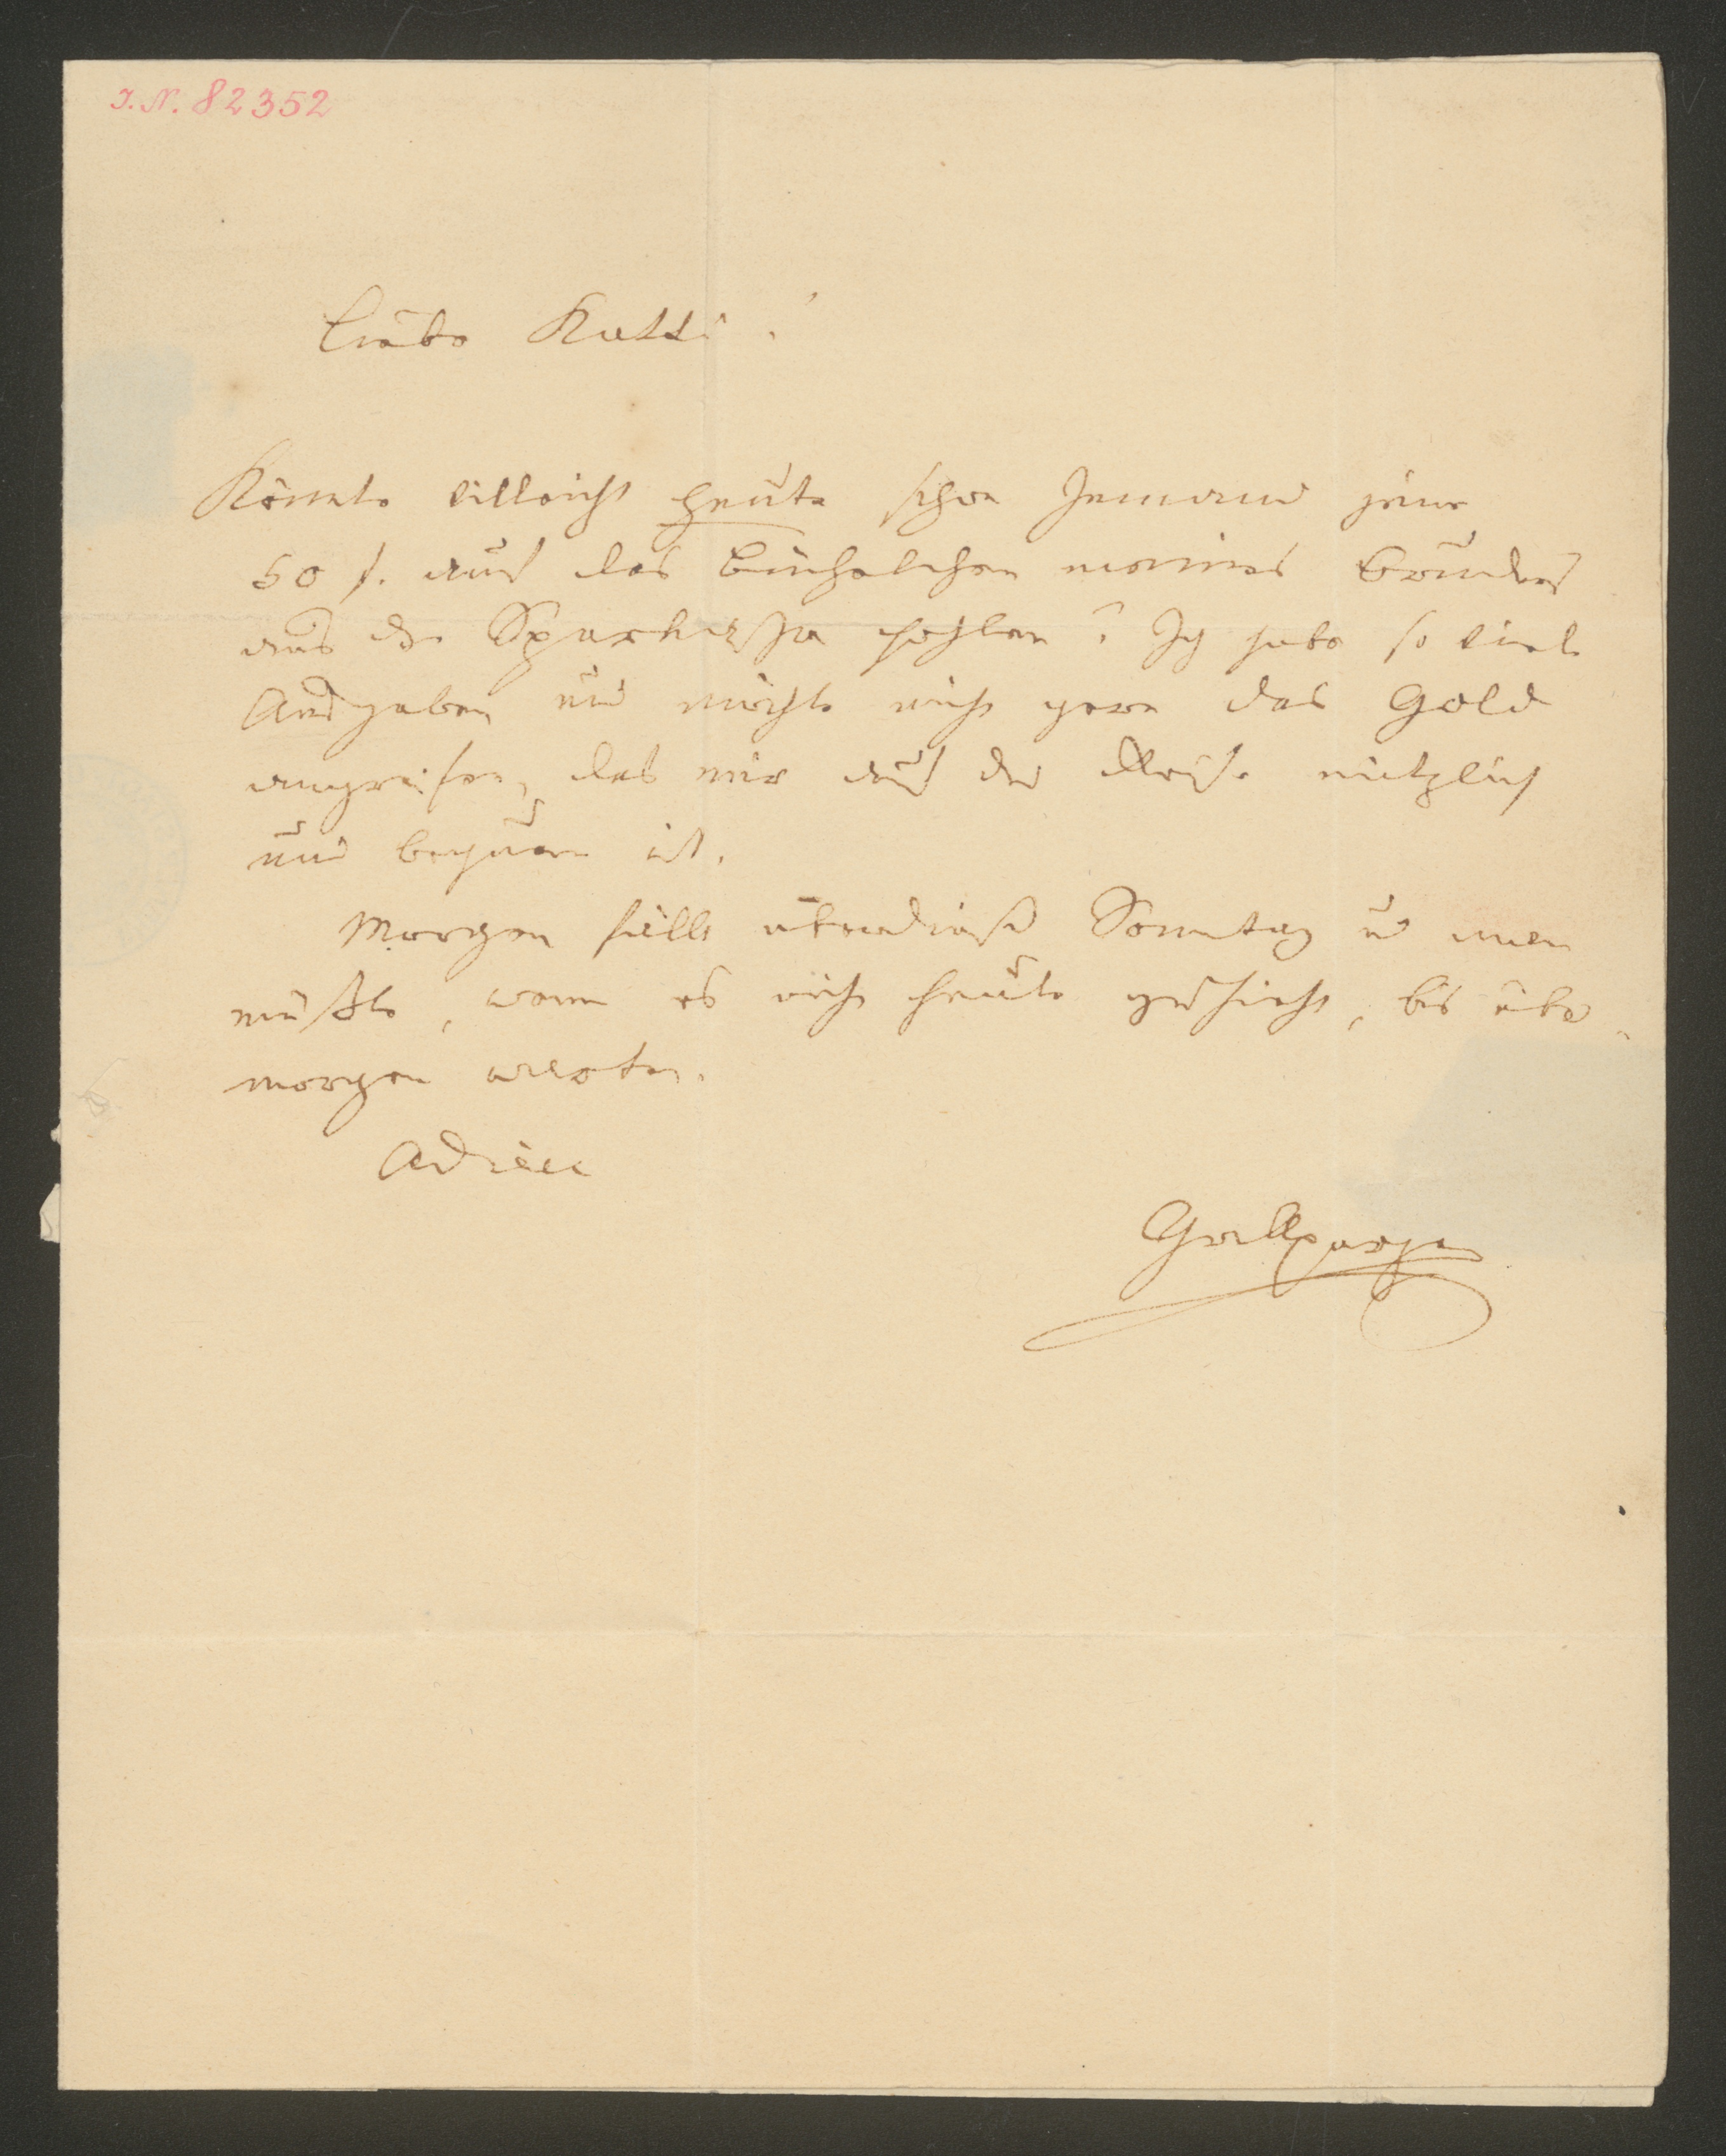 I. N. 82352
Liebe Katti!
Könnte villeicht heute schon Jemand jene
50 f. auf das Büchelchen meines Bruders
aus der Sparkasse hohlen? Ich habe so viele
Ausgaben und möchte nicht gern das Gold
angreifen, das mir auf der Reise nützlich
und bequem ist.
Morgen fällt überdieß Sonntag u man
müßte, wenn es nicht heute geschieht, bis über-
morgen warten.
Adieu
Grillparzer